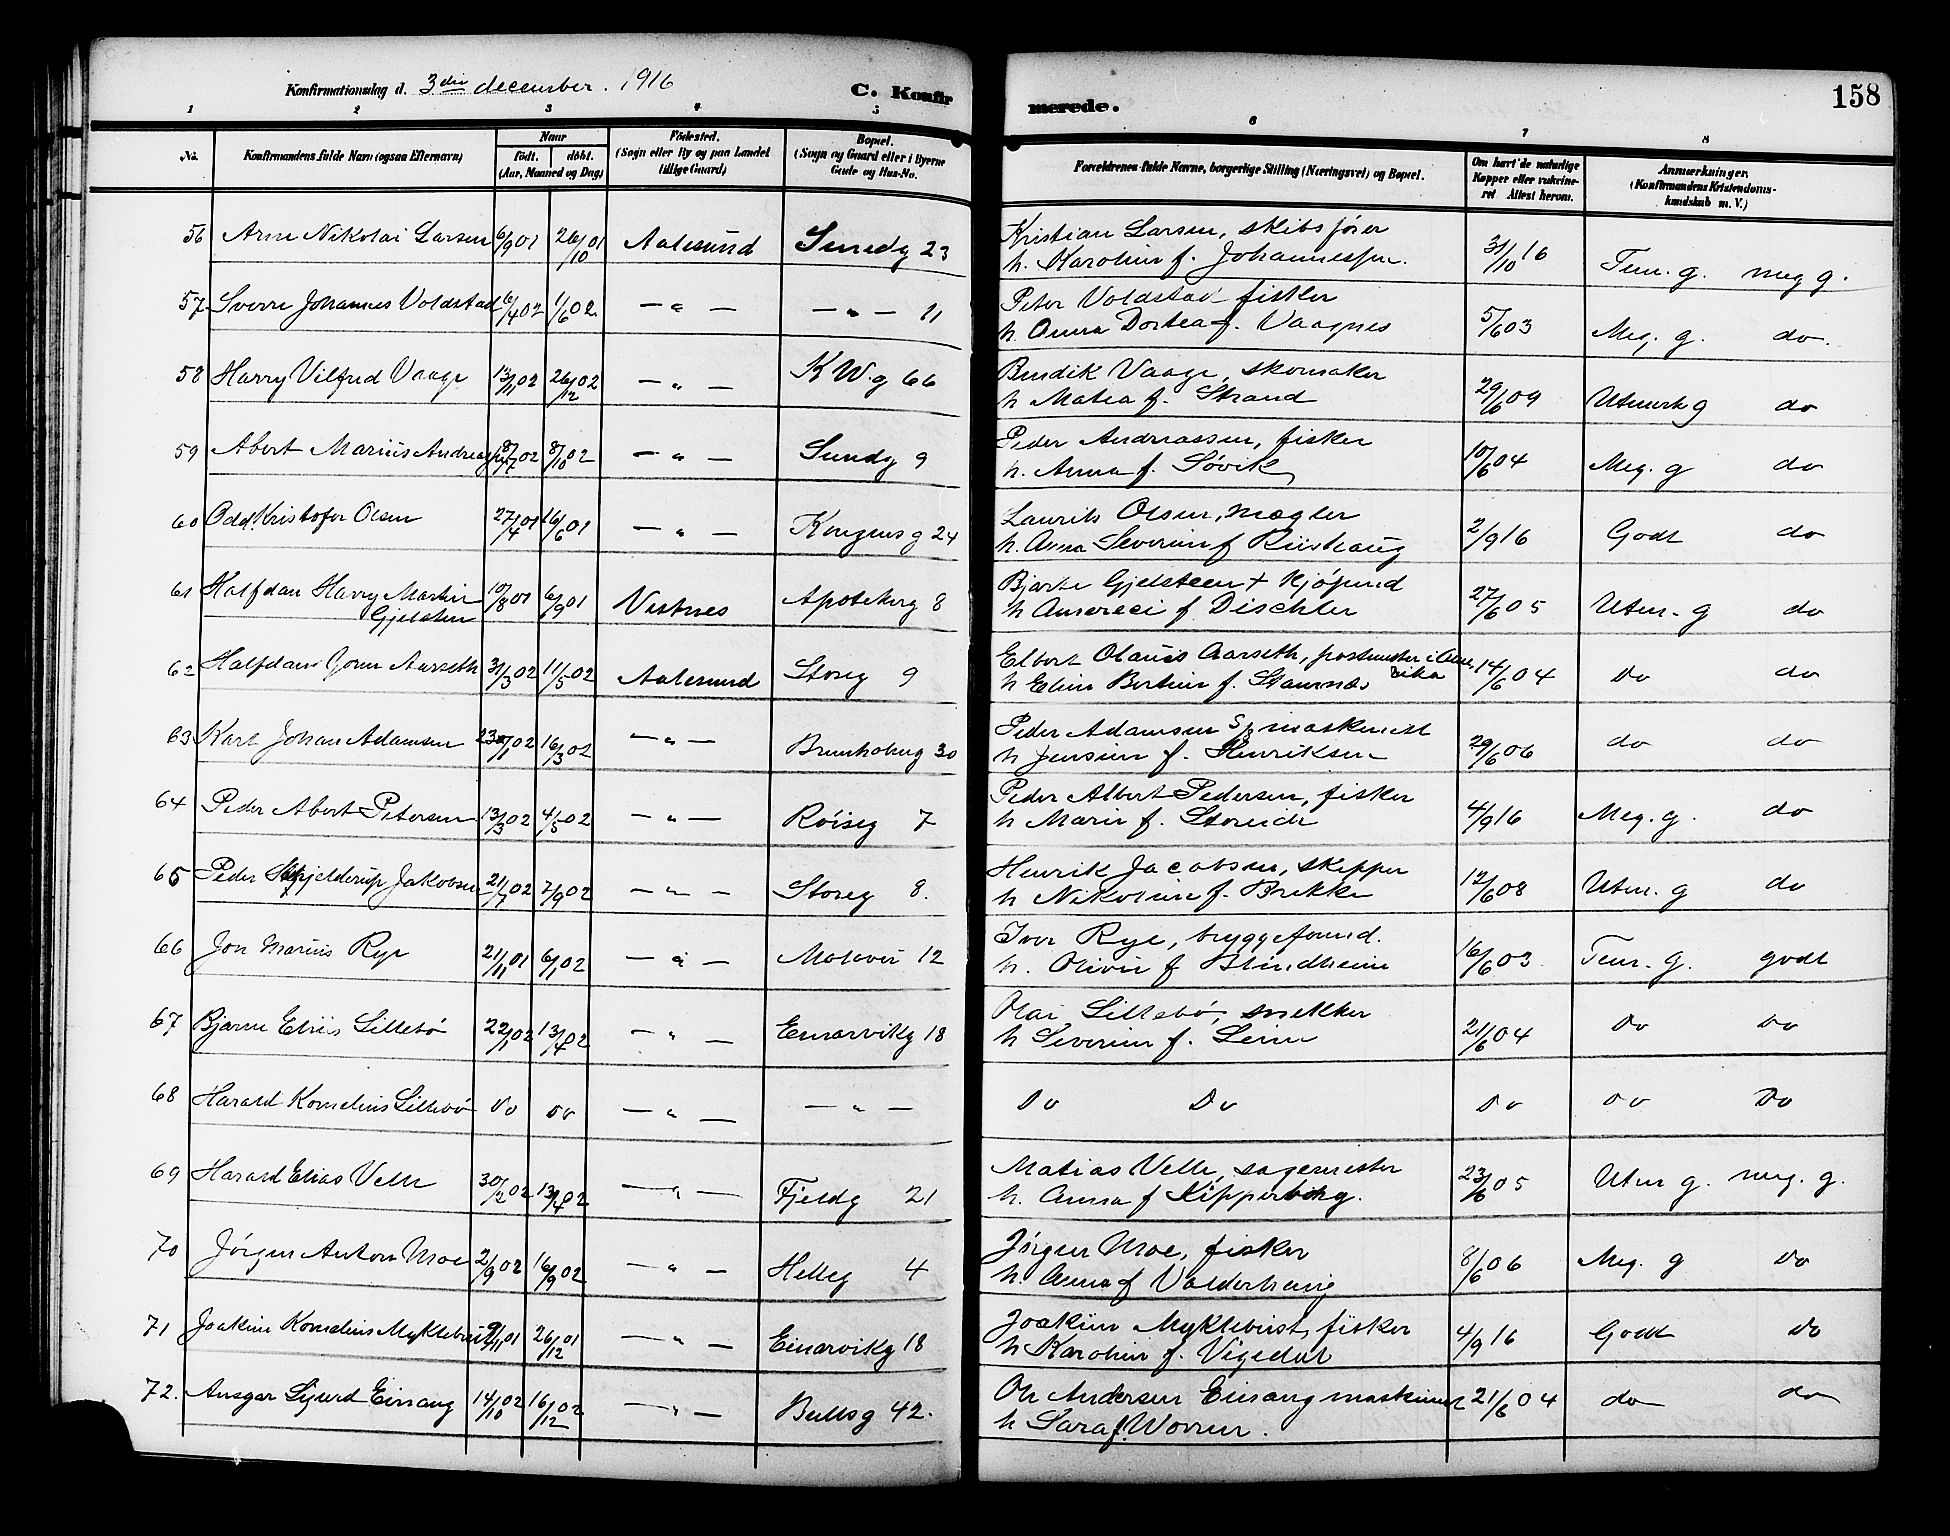 Konfirmationsdag d. 3die december. 1916 C. Konfir
merede. 158
1 2 3 4 5 6 7 8
No. Konfirmandens fulde Navn (ogsaa Efternavn) Naar födt. döbt. (Aar, Maaned og Dag) Födested. (Sogn eller By og paa Landet tillige Gaard) Bopæl. (Sogn og Gaard eller i Byerne Gade og Hus-No. Forældrenes fulde Navne, borgerlige Stilling (Næringsvei) og Bopæl. Om havt de naturlige Kopper eller vakcineret Attest herom. Anmærkninger. (Konfirmandens Kristendomskundskab m. V.)
56 Arne Nikolai Larsen 6/9 01 26/10 01 Aalesund Sundg 23 Kristian Larsen, skibsfører
h. Karoline f. Johannessen. 31/10 16 Tem. g. meg g.
57 Sverre Johannes Voldstad 6/4 02 1/6 02 — " — — " — 11 Peter Voldstad fisker
h Anna Dortea f. Vaagnes 5/6 03 Meg. g. do.
58 Harry Vilfred Vaage 13/11 02 26/12 02 — " — K W. g 66 Bendik Vaage, skomaker
h Matea f. Strand 29/6 09 Utmerk g do
59 Abert Marius Andreassen 18/7 02 8/10 02 — " — Sundg 9 Peder Andreassen, fisker
h. Anna f. Søvik 10/6 04 Meg. g do
60 Odd Kristofer Olsen 27/4 01 16/6 01 — " — Kongens g 24 Laurits Olsen, mægler
h. Anna Severine f Riishaug 2/9 16 Godt do
61 Halfdan Harry Martin
Gjelsten 10/8 01 6/9 01 Vestnes Apotekerg 8 Bjarte Gjelsteen + Kjøpmd
h f Dischler 27/6 05 Utm. g do
62 Halfdan Gorm Aarseth 31/3 02 11/5 02 Aalesund Storeg 9 Elbert Olaus Aarseth, postmester i Ame
rika
h Eline Bertine f. Stavnes 14/6 04 Do do
63 Karl Johan Adamsen 23/1 02 16/3 02 — " — Brunholmg 30 Peder Adamsen maskinist
h Jensine f. Henriksen 29/6 06 do do
64 Peder Abert Petersen 13/3 02 4/5 02 — " — Røiseg 7 Peder Albert Pedersen, fisker
h Maren f. Storeide 4/9 16 Meg. g. do
65 Peder Skjelderup Jakobsen 21/7 02 7/9 02 — " — Storeg 8. Henrik Jacobsen, skipper
h Nikoline f. Brekke 12/6 08 Utm. g do
66 Jon Marius Rye 21/11 01 6/1 02 — " — Molovei 12 Iver Rye, bryggeformd.
h. Olivie f Blindheim 16/6 03 Tem. g. godt
67 Bjarne Eliis Lillebø 22/1 02 13/4 02 — " — Einarvikg 18 Olai Lillebø, snekker
h Severine f. Leine 21/6 04 Do Do
68 Harald Kornelius Lillebø do do — " — — " — Do Do Do Do Do
69 Harald Elias Velle 30/2 02 13/4 02 — " — Fjeldg 21 Matias Velle, sagemester
h. Anna f Kipperberg. 23/6 05 Utm g. meg. g.
70 Jørgen Anton Moe 2/9 02 16/9 02 — " — Helleg 4 Jørgen Moe, fisker
h. Anna f Valderhaug 8/6 06 Meg. g Do
71 Joakim Kornelius Myklebust 9/11 01 26/12 01 — " — Einarvikg 18 Joakim Myklebust, fisker
h Karoline f. Vigedal 4/9 16 Godt do
72. Ansgar Sigurd Einsang 14/10 02 16/12 02 — " — Bullsg 42. Ole Andersen Einsang maskinist
h Sara f. Worren. 21/6 04 do do